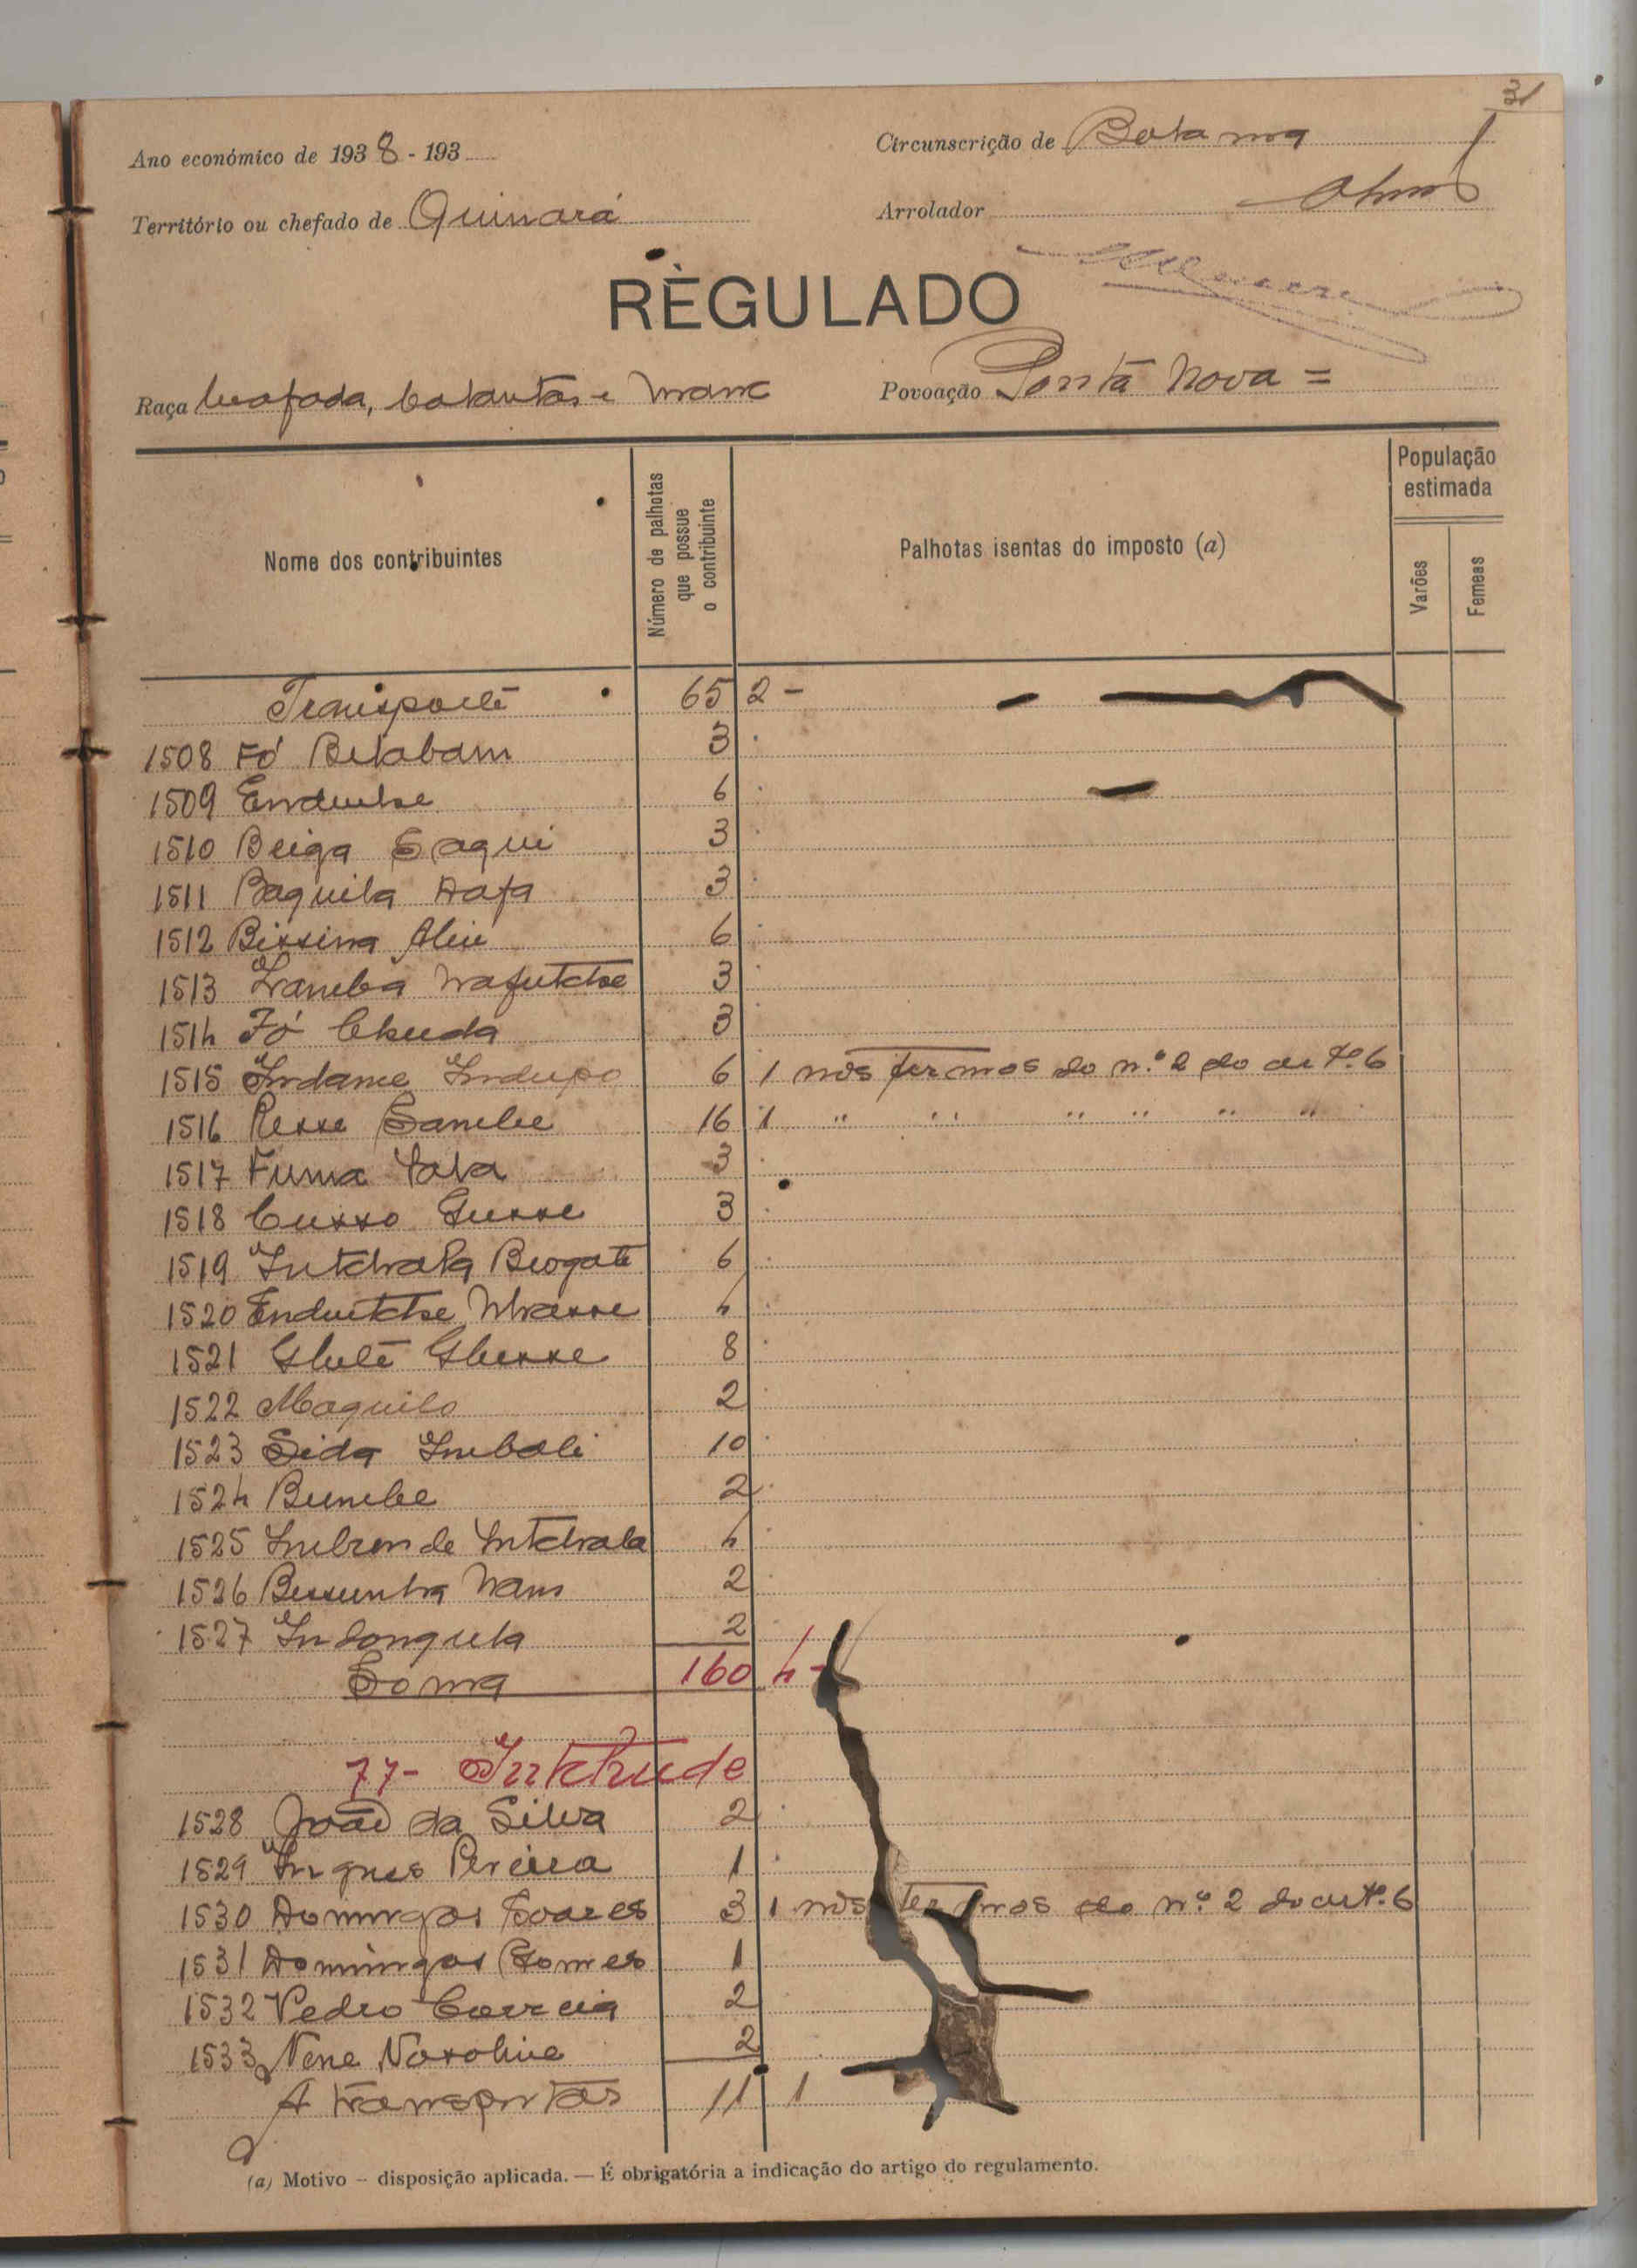 31
Ano económico de 1938 - 193
Circunscrição de Bolama
Território ou chefado de Quinará
Arrolador
REGULADO
Raça beafada, balantas e manc
Povoação Ponta Nova =
Nome dos contribuintes
Número de palhotas que possue o contribuinte
Palhotas isentas do imposto (a)
População estimada
Varões
Femeas
Transporte 65 2 -
1508 Fó Betabam 3
1509 Endutse 6
1510 Beiga Saqui 3
1511 Baquila Dafa 3
1512 Bissima Aliu 6
1513 Iambia Nafutche 3
1514 Fó Chuda 3
1515 Indame Indupo 6 1 nos termos do n.º 2 do artº. 6
1516 Resse Sambe 16 1 " " " " " "
1517 Fuma Iala 3
1518 Cusso Gusse 3
1519 Intchala Biogate 6
1520 Endutche Nhasse 4
1521 Glutê Ghesse 8
1522 Maquilo 2
1523 Sida Imbali 10
1524 Bumbe 2
1525 Imbunde Intchala 4
1526 Bissunha Nam 2
1527 Indongula 2
Soma 160 4 -
77- Intchude
1528 João da Silva 2
1529 Ingnes Pereira 1
1530 Domingos Soares 3 1 nos termos do n.º 2 do artº. 6
1531 Domingos Gomes 1
1532 Pedro Correia 2
1533 Nene Naroline 2
A transportar 11 1
(a) Motivo – disposição aplicada. — É obrigatória a indicação do artigo do regulamento.